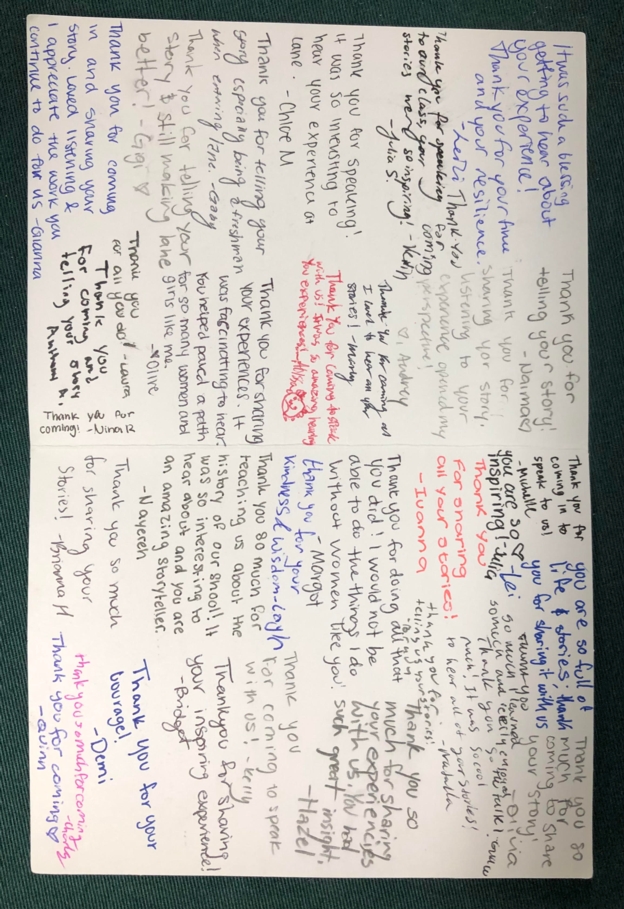 It was such a blessing
getting to hear about
your experience!
Thank you for your time
and your resilience.
Thank you for speaking
to our class, your
stories were so inspiring!
-Julia S.
Thank you for speaking!
It was so interesting to
hear your experience at
Lane. - Chloe M
Thank you for telling your
story especially being a freshman
when entering lane. -Gabby
Thank you for telling your
story & still making lane
better! - Gigi ♡
Thank you for coming
in and sharing your
story, loved listening &
I appreciate the work you
continue to do for us -Gianna
Thank you for
telling your story!
- Naima
Thank you for
sharing your story,
listening to your
experience opened my
perspective!
♡, Audrey
Thank you
for
coming
- Kevin
Thank you for coming in
I loved to hear all your
stories! - Marly
Thank you for coming to speak
with us! It was so amazing hearing
your experiences! -Alisa
Thank you for sharing
your experiences. It
was fascinating to hear
You helped paved a path
for so many women and
girls like me.
-Olive
Thank you
for all you do! -Laura
Thank you
for coming and
telling your story
Anthony A.
Thank you for
coming! - Nina R
Thank you for
coming in to
speak to us!
- Michelle
you are so
inspiring!
Thank you
for sharing
all your stories!
- Ivanna
Thank you for doing all that
you did! I would not be
able to do the things I do
without women like you!
- Margot
thank you for your
kindness & wisdom-Layh
Thank you so much for
teaching us about the
history of our shool! It
was so interesting to
hear about and you are
an amazing storyteller.
- Nayereh
Thank you so much
for sharing your
Stories! -Brianna H
you are so full of
life & stories; thank
you for sharing it with us
♡ -Lei
Thank you so
much for
coming to share
your story!
- Olivia
Thank you so
much! It was so cool
to hear all of your stories!
- Natalia
thank you for
telling us your stories!
Thank you so
much for sharing
your experiences
with us. You had
such great insight,
-Hazel
Thank you
for coming to speak
with us! - Kelly
Thankyou for sharing
your inspiring experience!
-Bridget
Thank you for your
courage!
- Demi
thank you so much for coming -Charly
Thank you for coming ♡
-Quinn